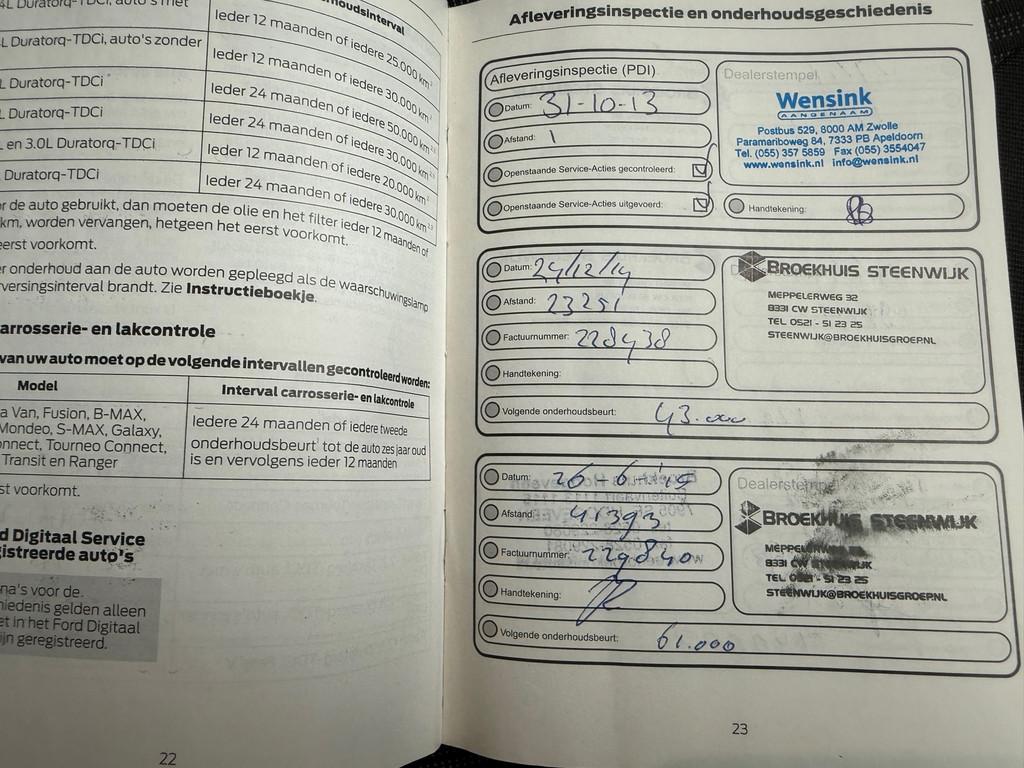 L Duratorq-TDCi, auto's zonder
L Duratorq-TDCi
L Duratorq-TDCi
L en 3.0L Duratorq-TDCi
Duratorq-TDCi
Ieder 12 maanden of iedere 25.000 km
Ieder 12 maanden of iedere 30.000 km
Ieder 24 maanden of iedere 50.000 km
Ieder 24 maanden of iedere 30.000 km
Ieder 12 maanden of iedere 20.000 km
Ieder 24 maanden of iedere 30.000 km
de auto gebruikt, dan moeten de olie en het filter ieder 12 maanden of
km, worden vervangen, hetgeen het eerst voorkomt.
eerst voorkomt.
onderhoud aan de auto worden gepleegd als de waarschuwingslamp
versingsinterval brandt. Zie Instructieboekje.
carrosserie- en lakcontrole
van uw auto moet op de volgende intervallen gecontroleerd worden:
Model
Interval carrosserie- en lakcontrole
a Van, Fusion, B-MAX,
Mondeo, S-MAX, Galaxy,
nnect, Tourneo Connect,
Transit en Ranger
Iedere 24 maanden of iedere tweede
onderhoudsbeurt tot de auto zes jaar oud
is en vervolgens ieder 12 maanden
st voorkomt.
d Digitaal Service
gistreerde auto's
na's voor de
niedenis gelden alleen
et in het Ford Digitaal
ijn geregistreerd.
22
Afleveringsinspectie en onderhoudsgeschiedenis
Afleveringsinspectie (PDI)
Datum: 31-10-13
Afstand: 1
Openstaande Service-Acties gecontroleerd:
Openstaande Service-Acties uitgevoerd:
Dealerstempel
Wensink
AANGENAAM
Postbus 529, 8000 AM Zwolle
Paramariboweg 84, 7333 PB Apeldoorn
Tel. (055) 357 5859 Fax (055) 3554047
www.wensink.nl info@wensink.nl
Handtekening:
Datum: 24/12/14
Afstand: 23251
Factuurnummer: 228438
Handtekening:
Volgende onderhoudsbeurt: 43.000
BROEKHUIS STEENWIJK
MEPPELERWEG 32
8331 CW STEENWIJK
TEL 0521 - 51 23 25
STEENWIJK@BROEKHUISGROEP.NL
Datum: 26-6-'15
Afstand: 41393
Factuurnummer: 229840
Handtekening:
Volgende onderhoudsbeurt: 61.000
Dealerstempel
BROEKHUIS STEENWIJK
MEPPELERWEG
8331 CW STEENWIJK
TEL 0521 - 51 23 25
STEENWIJK@BROEKHUISGROEP.NL
23